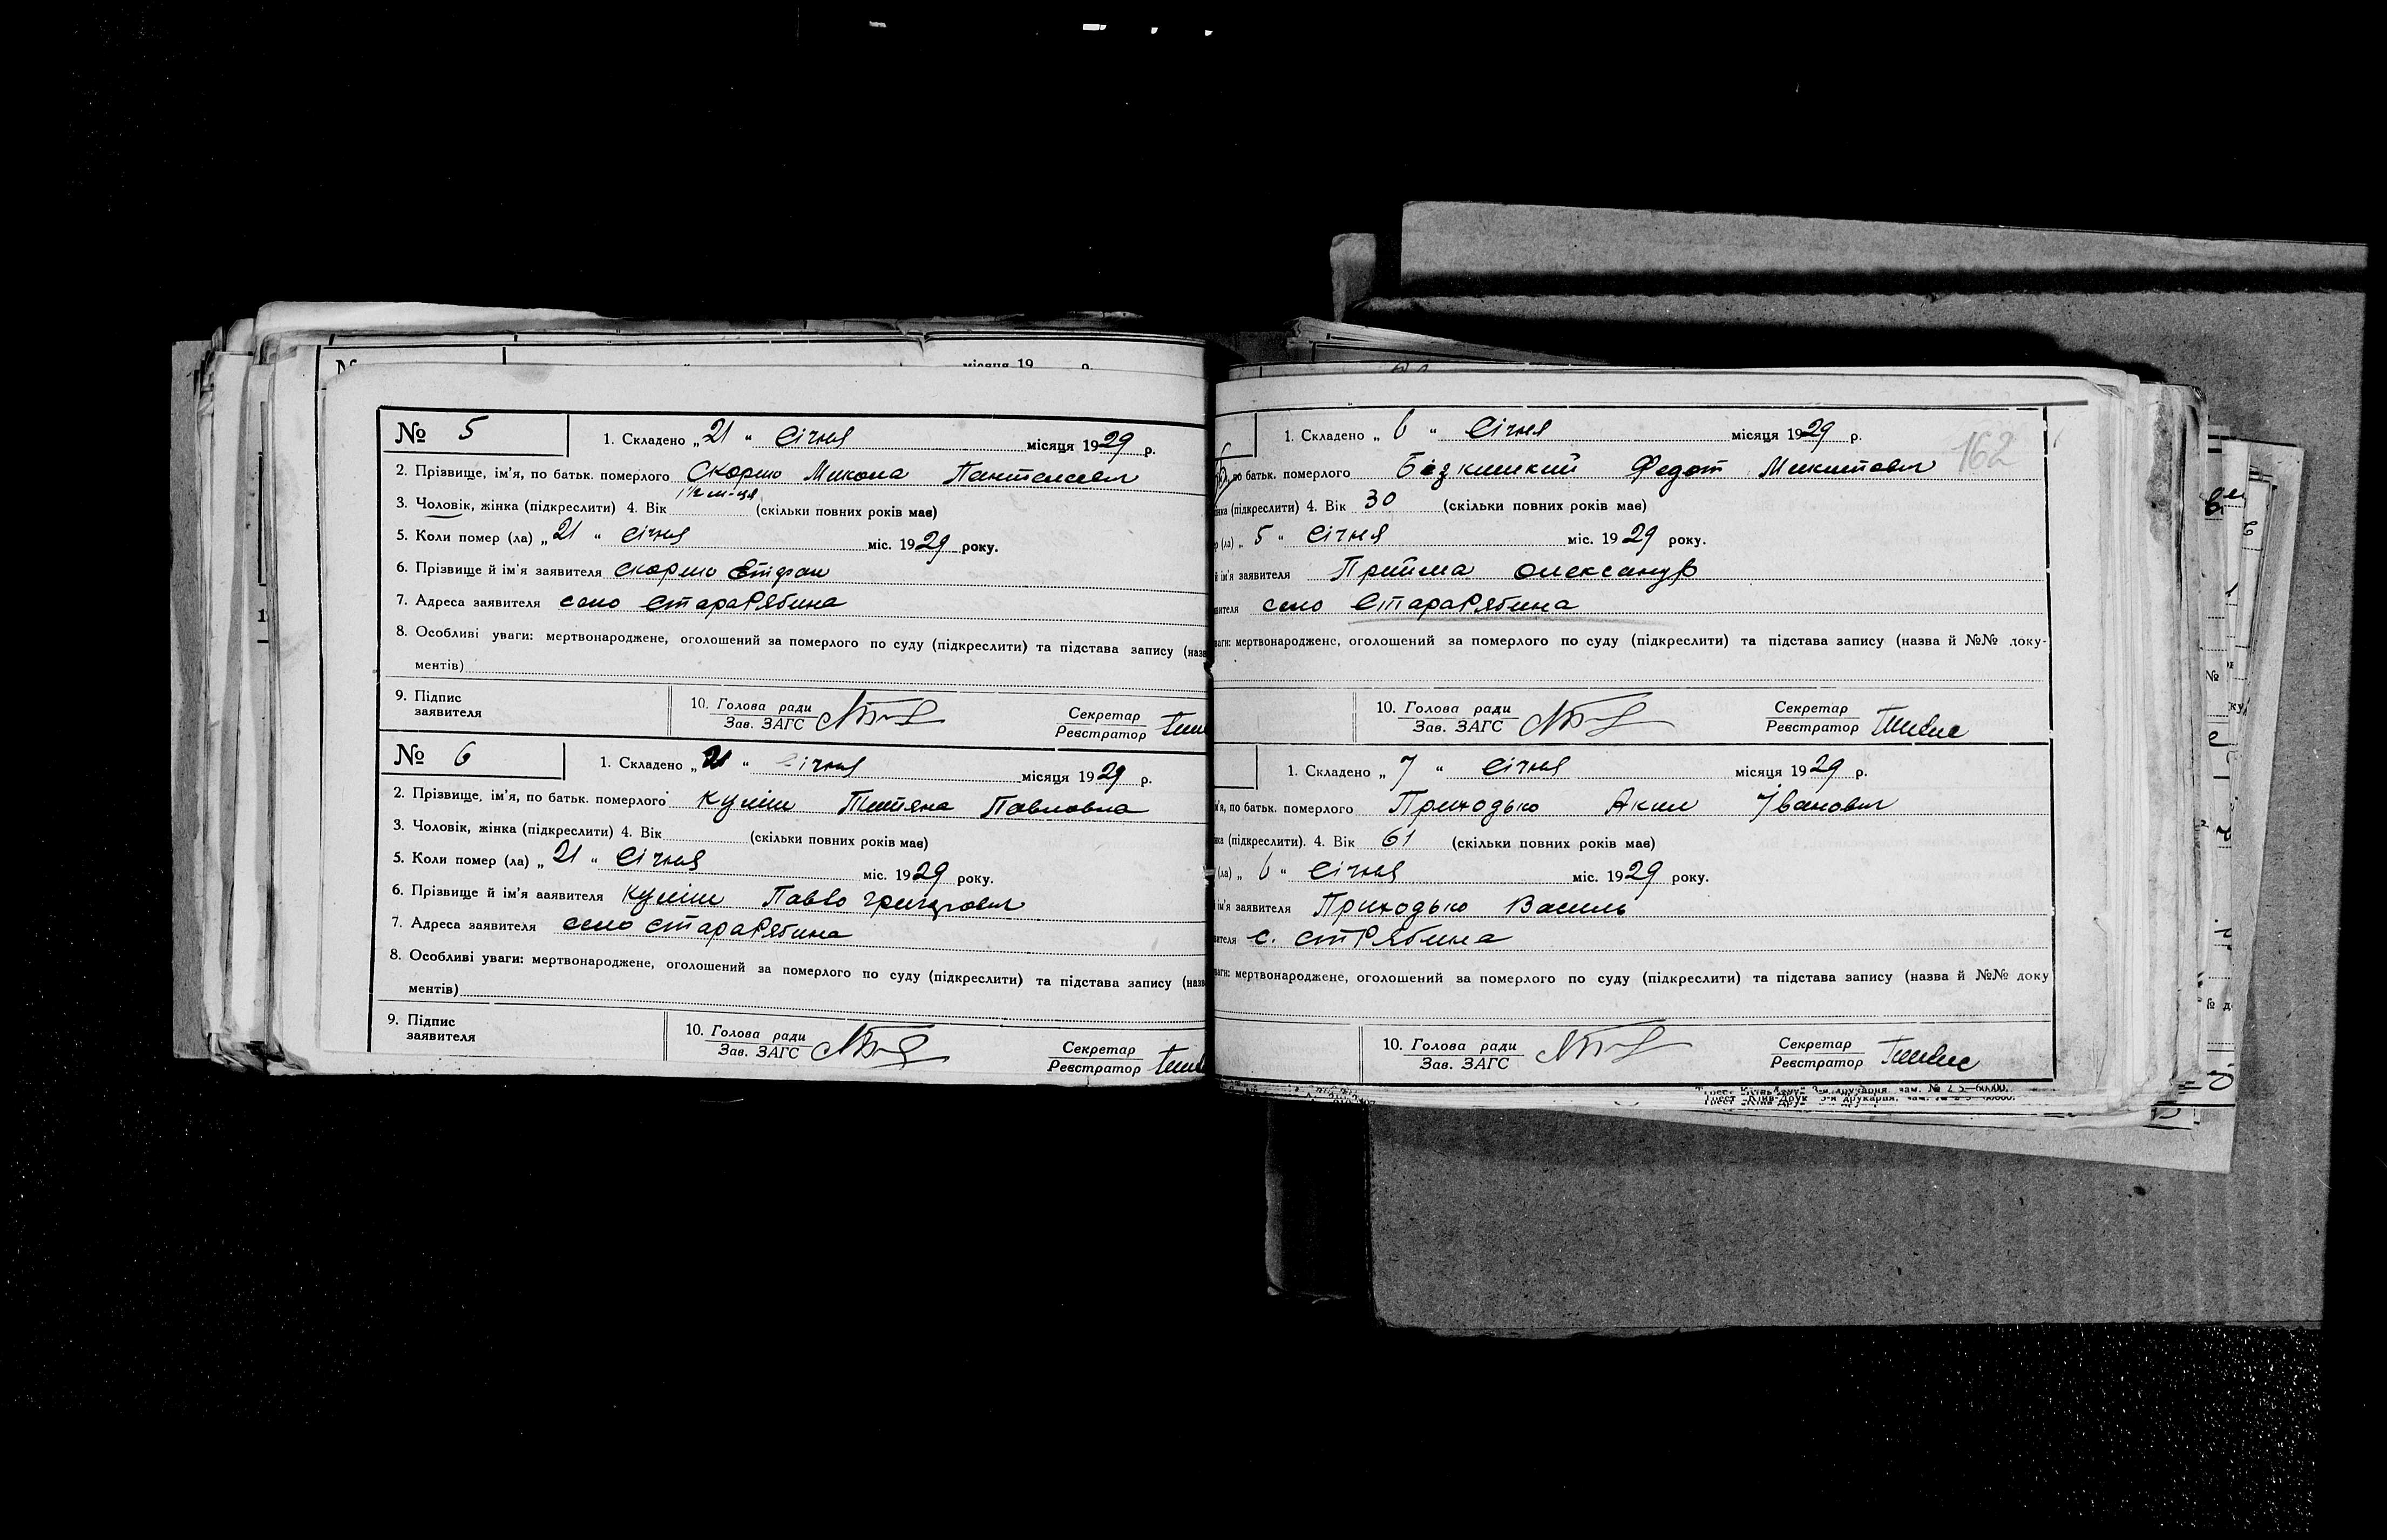 № 5
1. Складено „21“ Січня місяця 1929 р.
2. Прізвище, ім'я, по батьк. померлого Скорик Микола
1½ м-ця
3. Чоловік, жінка (підкреслити) 4. Вік (скільки повних років має)
5. Коли помер (ла) „21“ Січня міс. 1929 року.
6. Прізвище й ім'я заявителя Стефан
7. Адреса заявителя село СтараРябина
8. Особливі уваги: мертвонароджене, оголошений за померлого по суду (підкреслити) та підстава запису (назв
ментів)
9. Підпис
заявителя
10. Голова ради
Зав. ЗАГС
Секретар
Реєстратор
№ 6
1. Складено „21“ Січня місяця 1929 р.
2. Прізвище, ім'я, по батьк. померлого Куліш Титяна Павловна
3. Чоловік, жінка (підкреслити) 4. Вік (скільки повних років має)
5. Коли помер (ла) „21“ Січня міс. 1929 року.
6. Прізвище й ім'я заявителя Куліш Павло Григорович
7. Адреса заявителя село СтараРябина
8. Особливі уваги: мертвонароджене, оголошений за померлого по суду (підкреслити) та підстава запису (назв
ментів)
9. Підпис
заявителя
10. Голова ради
Зав. ЗАГС
Секретар
Реєстратор
162
1. Складено „6“ Січня місяця 1929 р.
по батьк. померлого Федот Микитович
(підкреслити) 4. Вік 30 (скільки повних років має)
(ла) „5“ Січня міс. 1929 року.
й ім'я заявителя Прийма Олександр
село СтараРябина
мертвонароджене, оголошений за померлого по суду (підкреслити) та підстава запису (назва й №№ доку-
10. Голова ради
Зав. ЗАГС
Секретар
Реєстратор
1. Складено „7“ Січня місяця 1929 р.
по батьк. померлого Приходько Аким Іванович
(підкреслити). 4. Вік 61 (скільки повних років має)
(ла) „6“ Січня міс. 1929 року.
ім'я заявителя Приходько Василь
с. СтРябина
мертвонароджене, оголошений за померлого по суду (підкреслити) та підстава запису (назва й №№ доку
10. Голова ради
Зав. ЗАГС
Секретар
Реєстратор